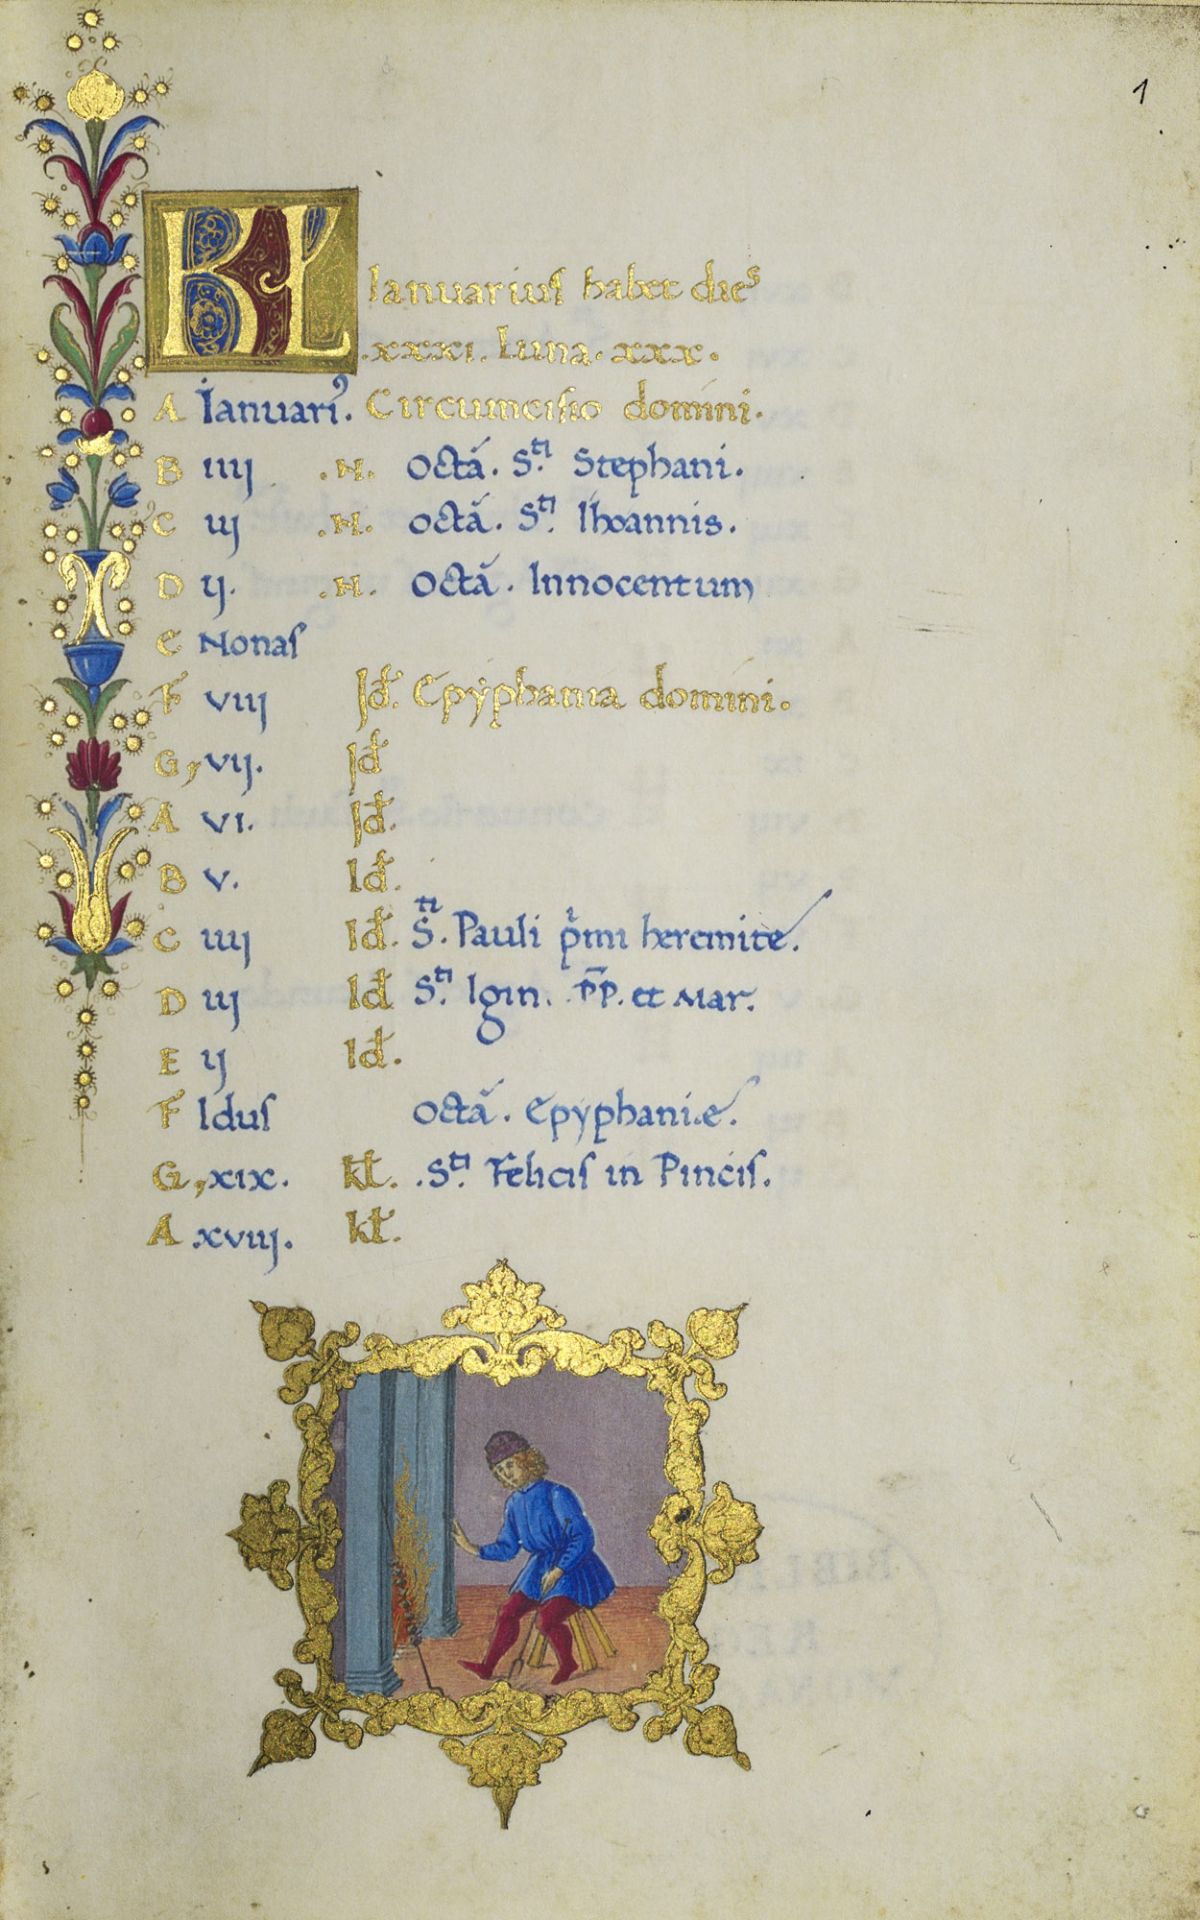 1
KL Ianuarius habet dies
.xxxi. Luna. xxx.
A Ianuariꝰ. Circumcisio domini.
B iiij .N. octã. S.ti Stephani.
C iij .N. octã. S.ti Ihoannis.
D ij. .N. octã. Innocentum
E Nonas
F viij Id. Epyphania domini.
G, vij. Id
A vi. Id.
B v. Id.
C iiij Id. S.ti Pauli pimi heremite.
D iij Id S.ti Igin. PP. et Mar.
E ij Id.
F Idus octã. Epyphanie.
G, xix. kł. .S.ti Felicis in Pincis.
A .xviij. kł.